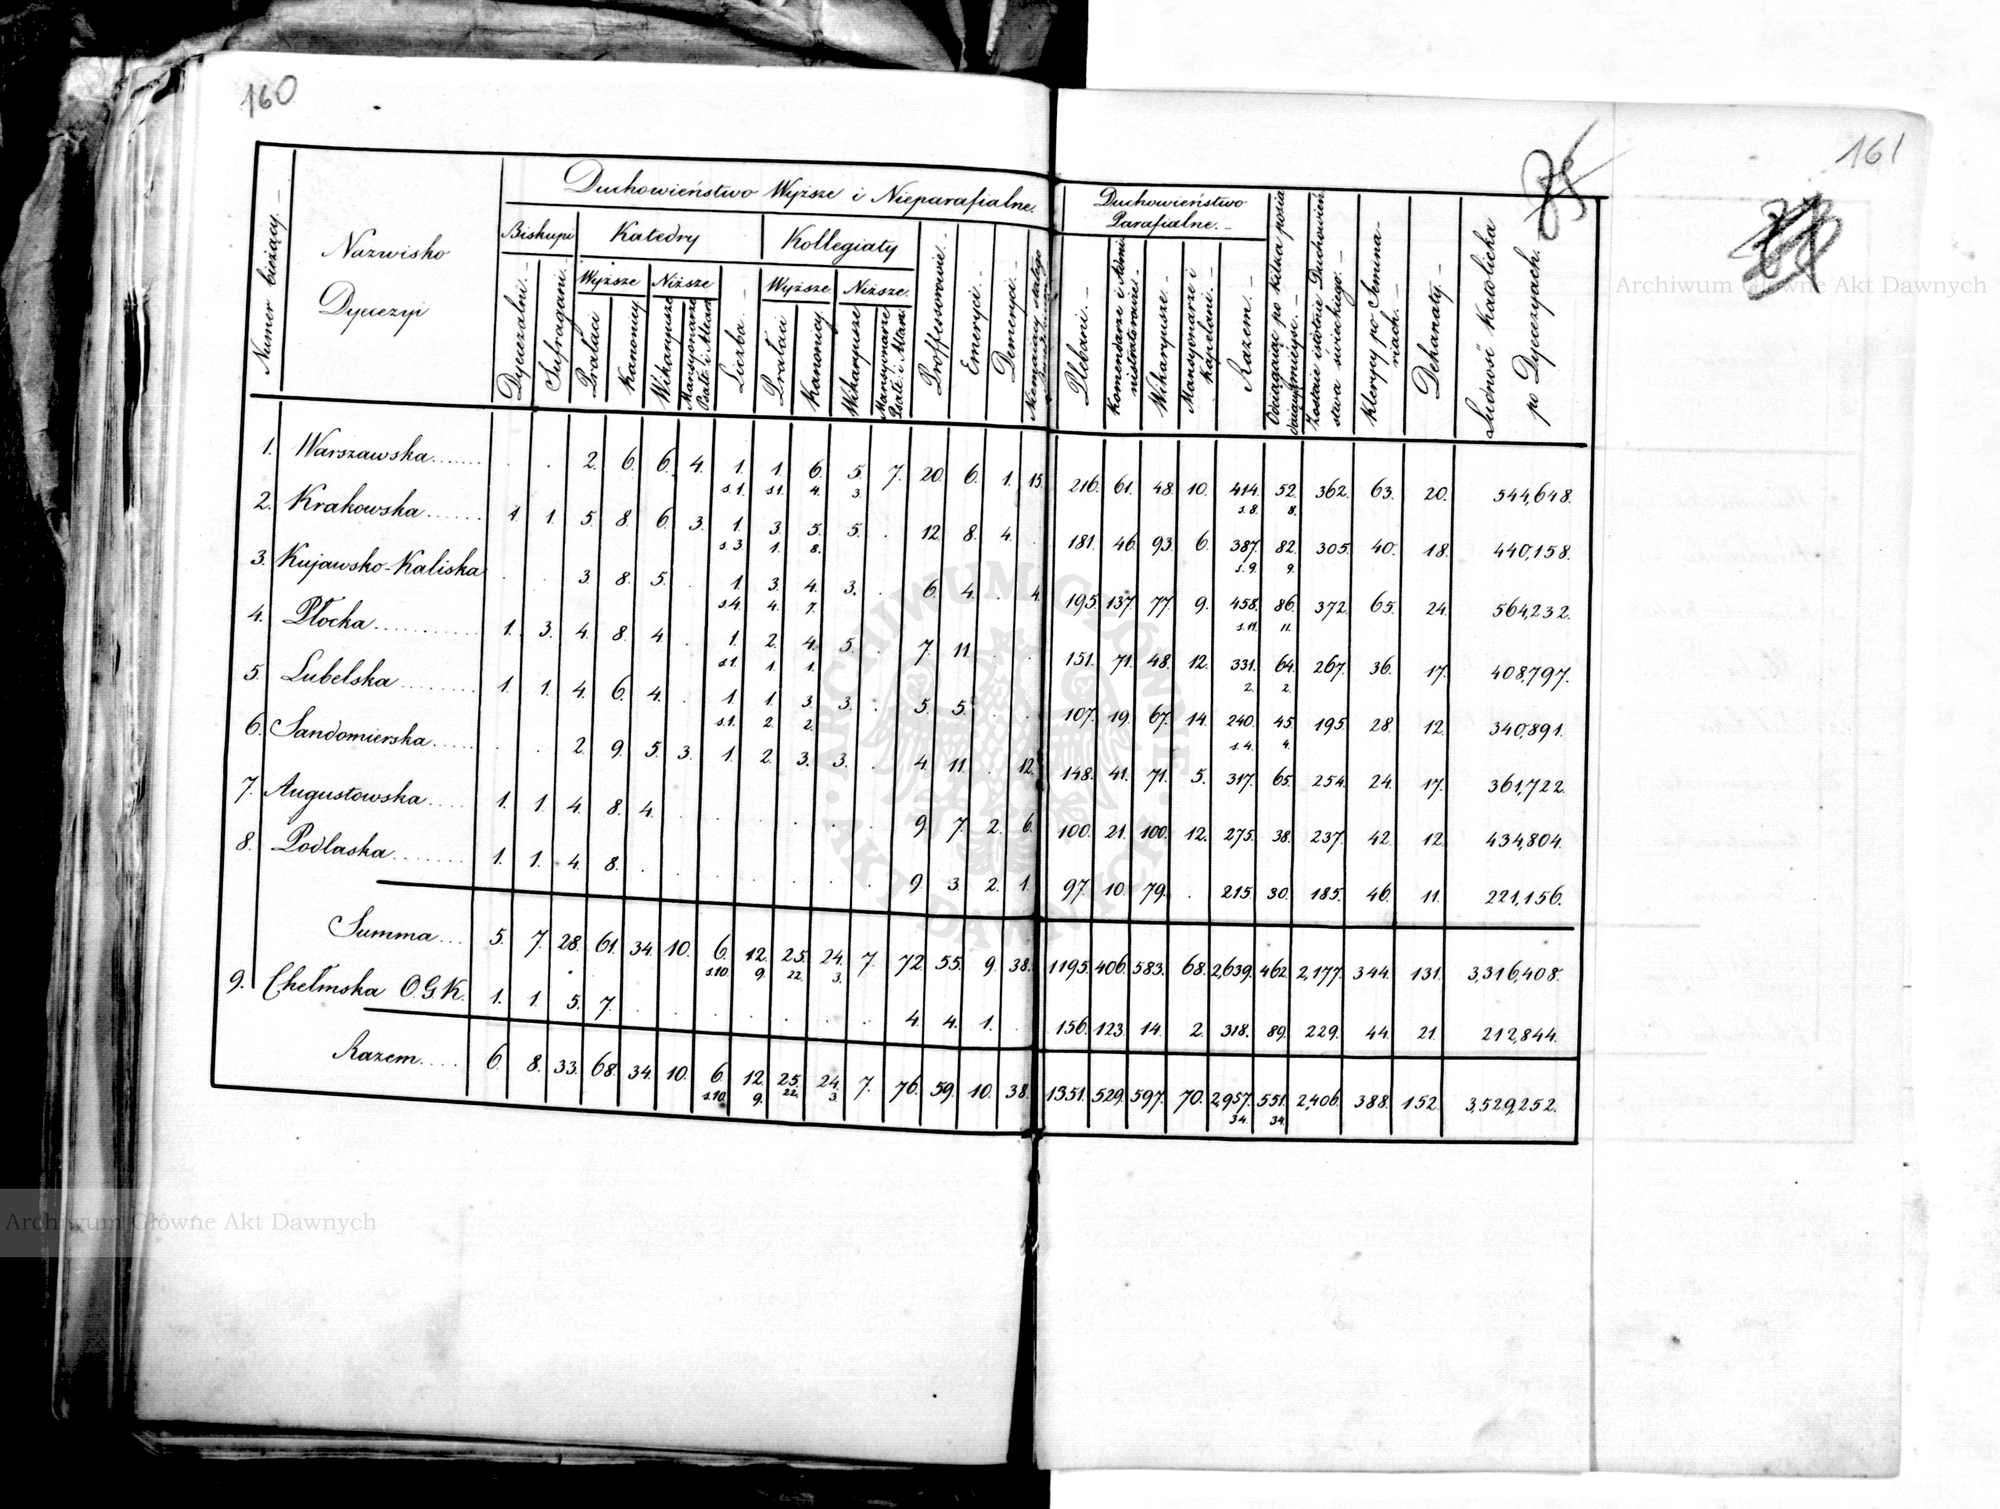 160
161
Numer bieżący. —
Nazwisko
Dyecezyi
Duchowieństwo Wyższe i Nieparafialne.
Biskupi
Katedry
Kollegiaty
Wyższe
Niższe
Wyższe
Niższe.
Dyecezalni. —
Sufragani. —
Prałaci
Kanonicy
Wikaryusze
Mansyonarze
Liczba. —
Prałaci
Kanonicy.
Wikaryusze
Mansyonarze
Professorowie. —
Emeryci. —
Demeryci. —
Duchowieństwo
Parafialne. —
Plebani. —
Komendarze i Admi-
nistratorowie. —
Wikaryusze. —
Mansyonarze i
Kapelani. —
Razem. —
Zostaie istotnie Duchowień-
stwa świeckiego. —
Klerycy po Semina-
riach. —
Dekanaty. —
Ludność Katolicka
po Dyecezyach.
1. Warszawska....... . . 2. 6. 6. 4. 1. 1. 6. 5. 7. 20. 6. 1. 15. 216. 61. 48. 10. 414. 52. 362. 63. 20. 544,648.
s.1. s.1. 4. 3. s.8. 8.
2. Krakowska....... 1. 1. 5. 8. 6. 3. 1. 3. 5. 5. . 12. 8. 4. . 181. 46. 93. 6. 387. 82. 305. 40. 18. 440,158.
s.3. 1. 8. s.9. 9.
3. Kujawsko-Kaliska . . 3 8. 5. . 1. 3. 4. 3. . 6. 4. . 4. 195. 137. 77. 9. 458. 86. 372. 65. 24. 564,232.
s.4. 4. 7. s.11. 11.
4. Płocka............ 1. 3. 4. 8. 4 . 1. 2. 4. 5. . 7. 11. . . 151. 71. 48. 12. 331. 64. 267. 36. 17. 408,797.
s.1. 1. 1. 2. 2.
5. Lubelska......... 1. 1. 4. 6. 4. . 1. 1. 3. 3. . 5. 5. . . 107. 19. 67. 14. 240. 45. 195. 28. 12. 340,891.
s.1. 2. 2. s.4. 4.
6. Sandomierska..... . . 2. 9. 5. 3. 1. 2. 3. 3. . 4. 11. . 12. 148. 41. 71. 5. 317. 65. 254. 24. 17. 361,722.
7. Augustowska..... 1. 1. 4. 8. 4. . . . . . . 9. 7. 2. 6. 100. 21. 100. 12. 275. 38. 237. 42. 12. 434,804.
8. Podlaska........ 1. 1. 4. 8. . . . . . . . 9. 3. 2. 1. 97. 10. 79. . 215. 30. 185. 46. 11. 221,156.
Summa... 5. 7. 28. 61. 34. 10. 6. 12. 25. 24. 7. 72. 55. 9. 38. 1195. 406. 583. 68. 2,639. 462. 2,177. 344. 131. 3,316,408.
s.10 9. 22. 3.
9. Chełmska O.G.K. 1. 1. 5. 7. . . . . . . . 4. 4. 1. . 156. 123. 14. 2. 318. 89. 229. 44. 21. 212,844.
Razem.... 6. 8. 33. 68. 34. 10. 6. 12. 25. 24. 7. 76. 59. 10. 38. 1351. 529. 597. 70. 2,957. 551. 2,406. 388. 152. 3,529,252.
s.10. 9. 22. 3. 34. 34.
Archiwum Główne Akt Dawnych
Archiwum Główne Akt Dawnych
ARCHIWUM GŁÓWNE
AKT DAWNYCH